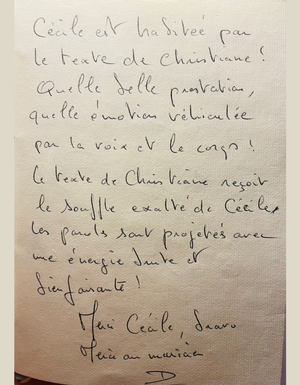 Cécile est habitée par
le texte de Christiane !
Quelle belle prestation,
quelle émotion véhiculée
par la voix et le corps !
Le texte de Christiane reçoit
le souffle exalté de Cécile,
les paroles sont projetées avec
une énergie brute et
bienfaisante !
Merci Cécile, bravo
Merci au musicien
D